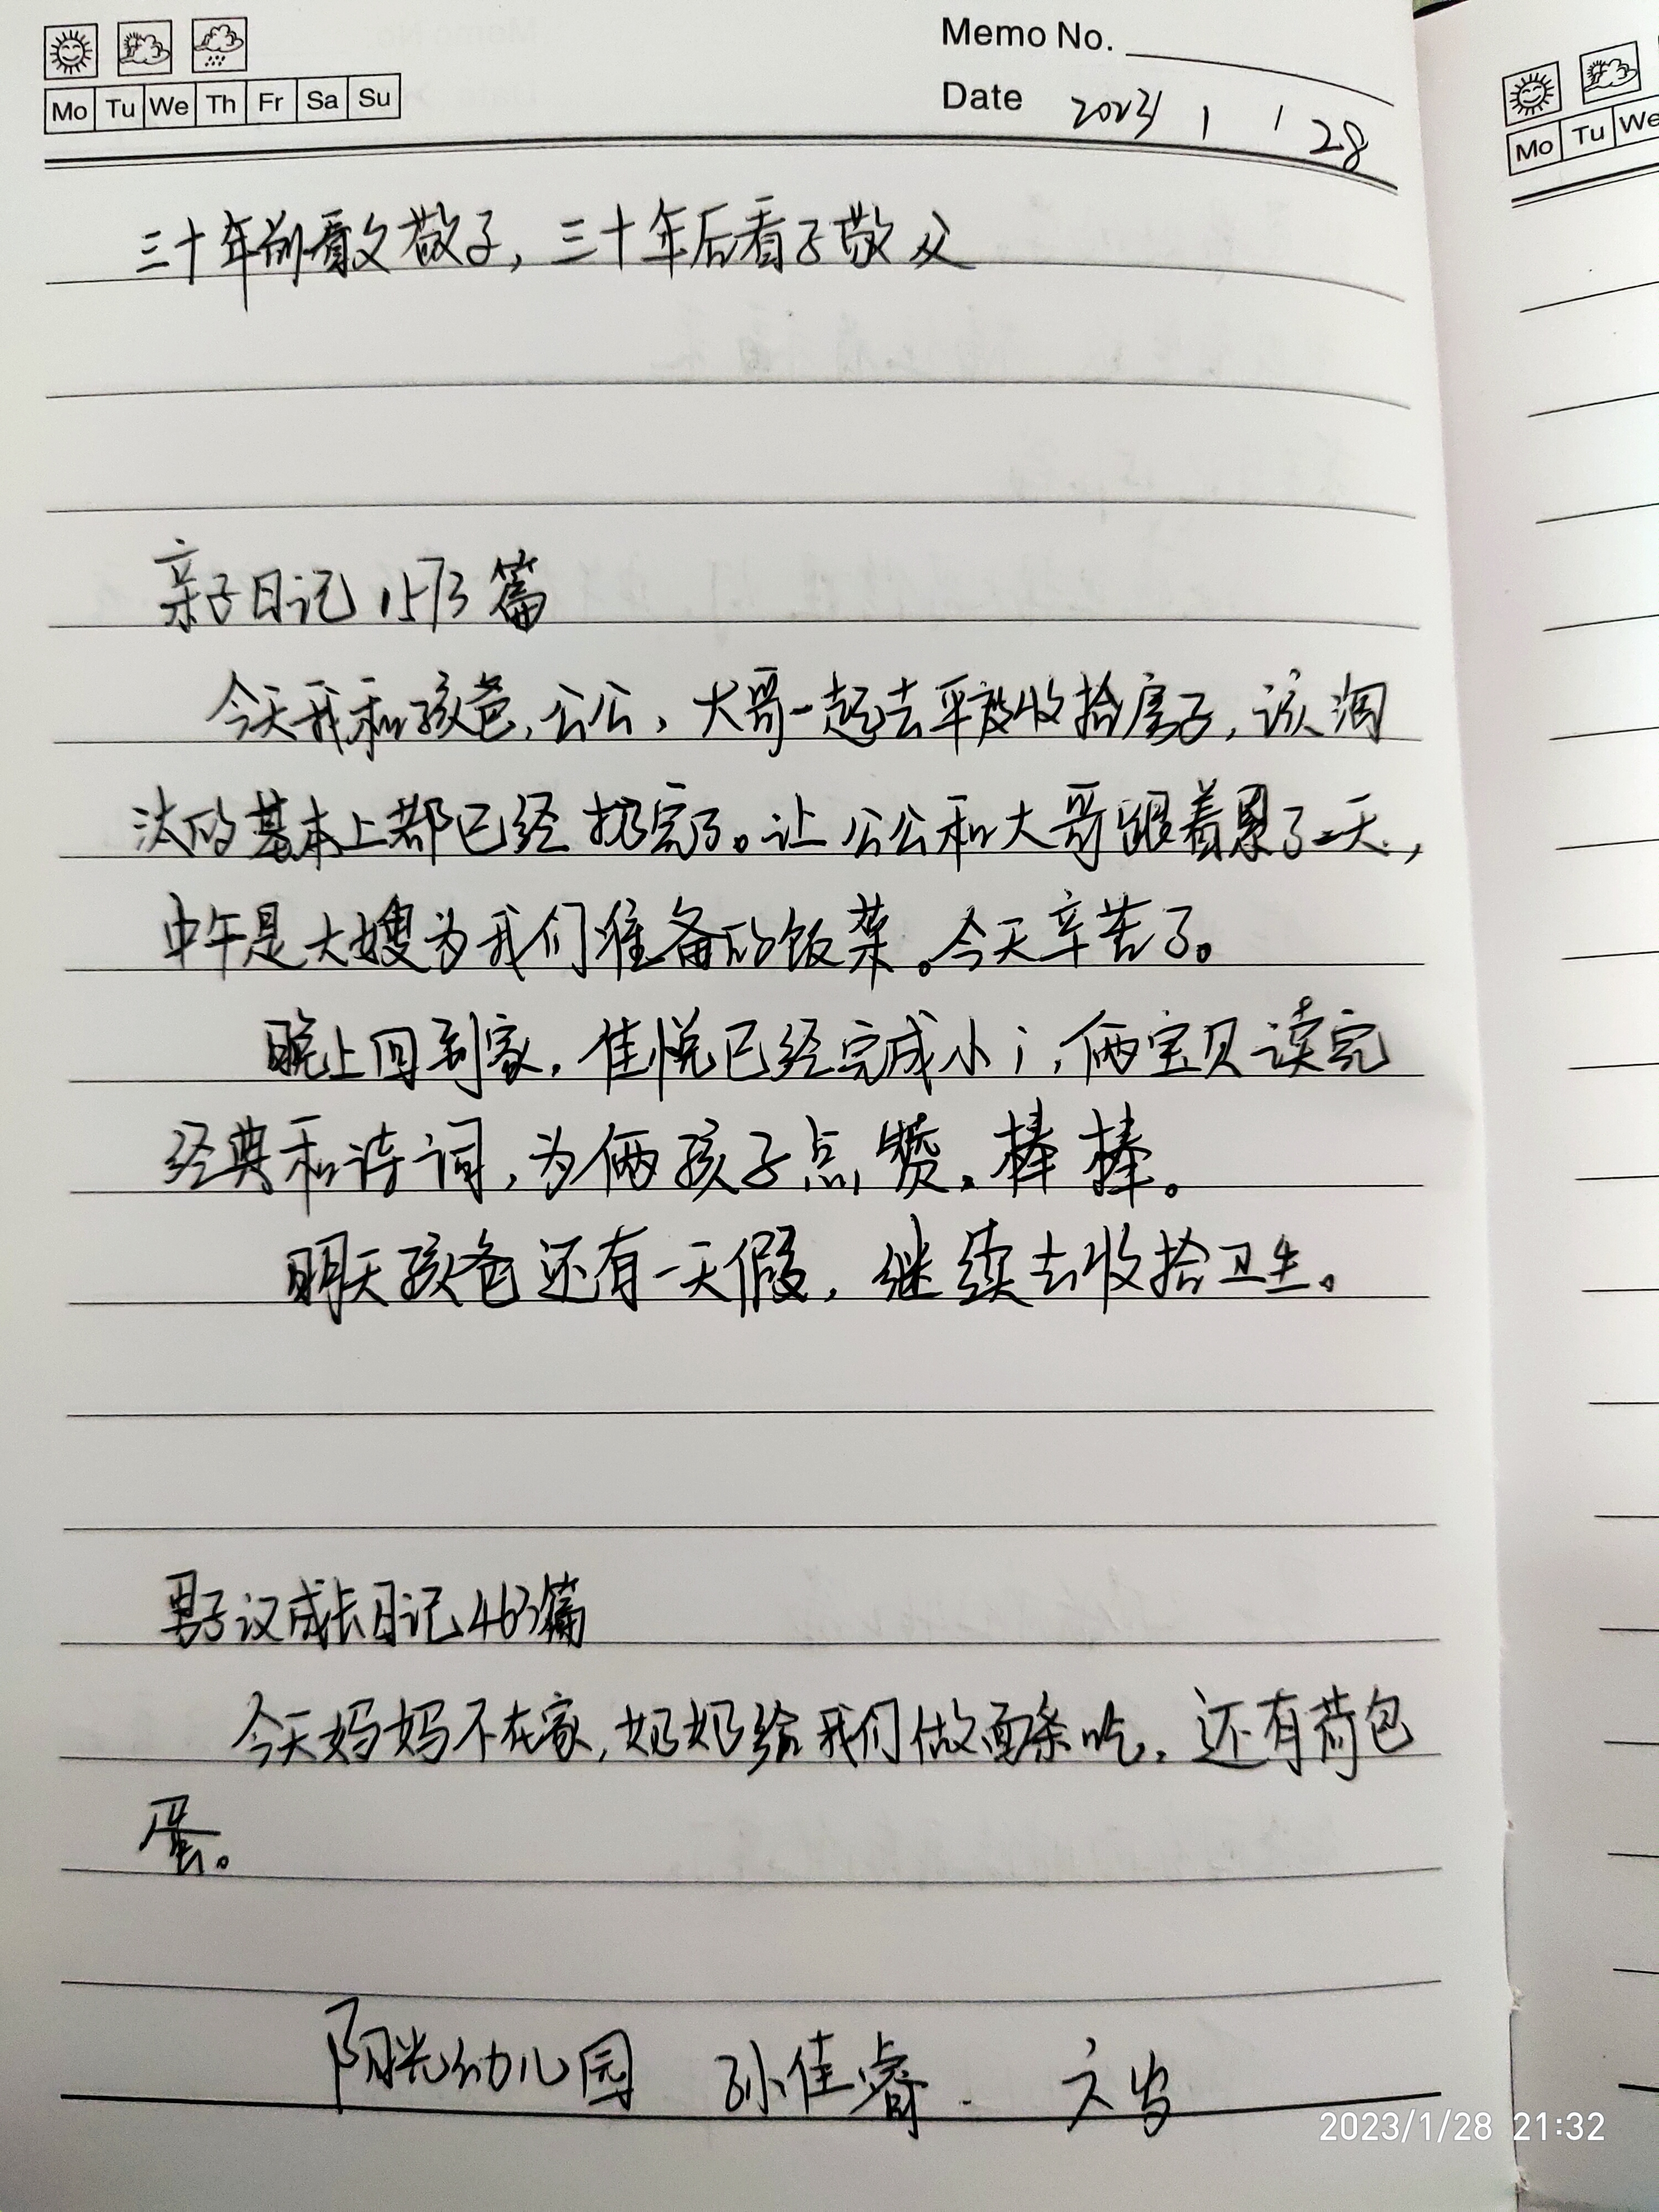 Memo No.
Mo Tu We Th Fr Sa Su
Date 2023 / 1 / 28
Mo Tu We
三十年前看父敬子，三十年后看子敬父
亲子日记1573篇
今天我和孩爸，公公，大哥一起去平坡收拾房子，该淘
汰的基本上都已经扔完了。让公公和大哥跟着累了一天，
中午是大嫂为我们准备的饭菜。今天辛苦了。
晚上回到家，佳悦已经完成小i，俩宝贝读完
经典和诗词，为俩孩子点赞，棒棒。
明天孩爸还有一天假，继续去收拾卫生。
男子汉成长日记463篇
今天妈妈不在家，奶奶给我们做面条吃，还有荷包
蛋。
阳光幼儿园 孙佳睿 六岁
2023/1/28 21:32